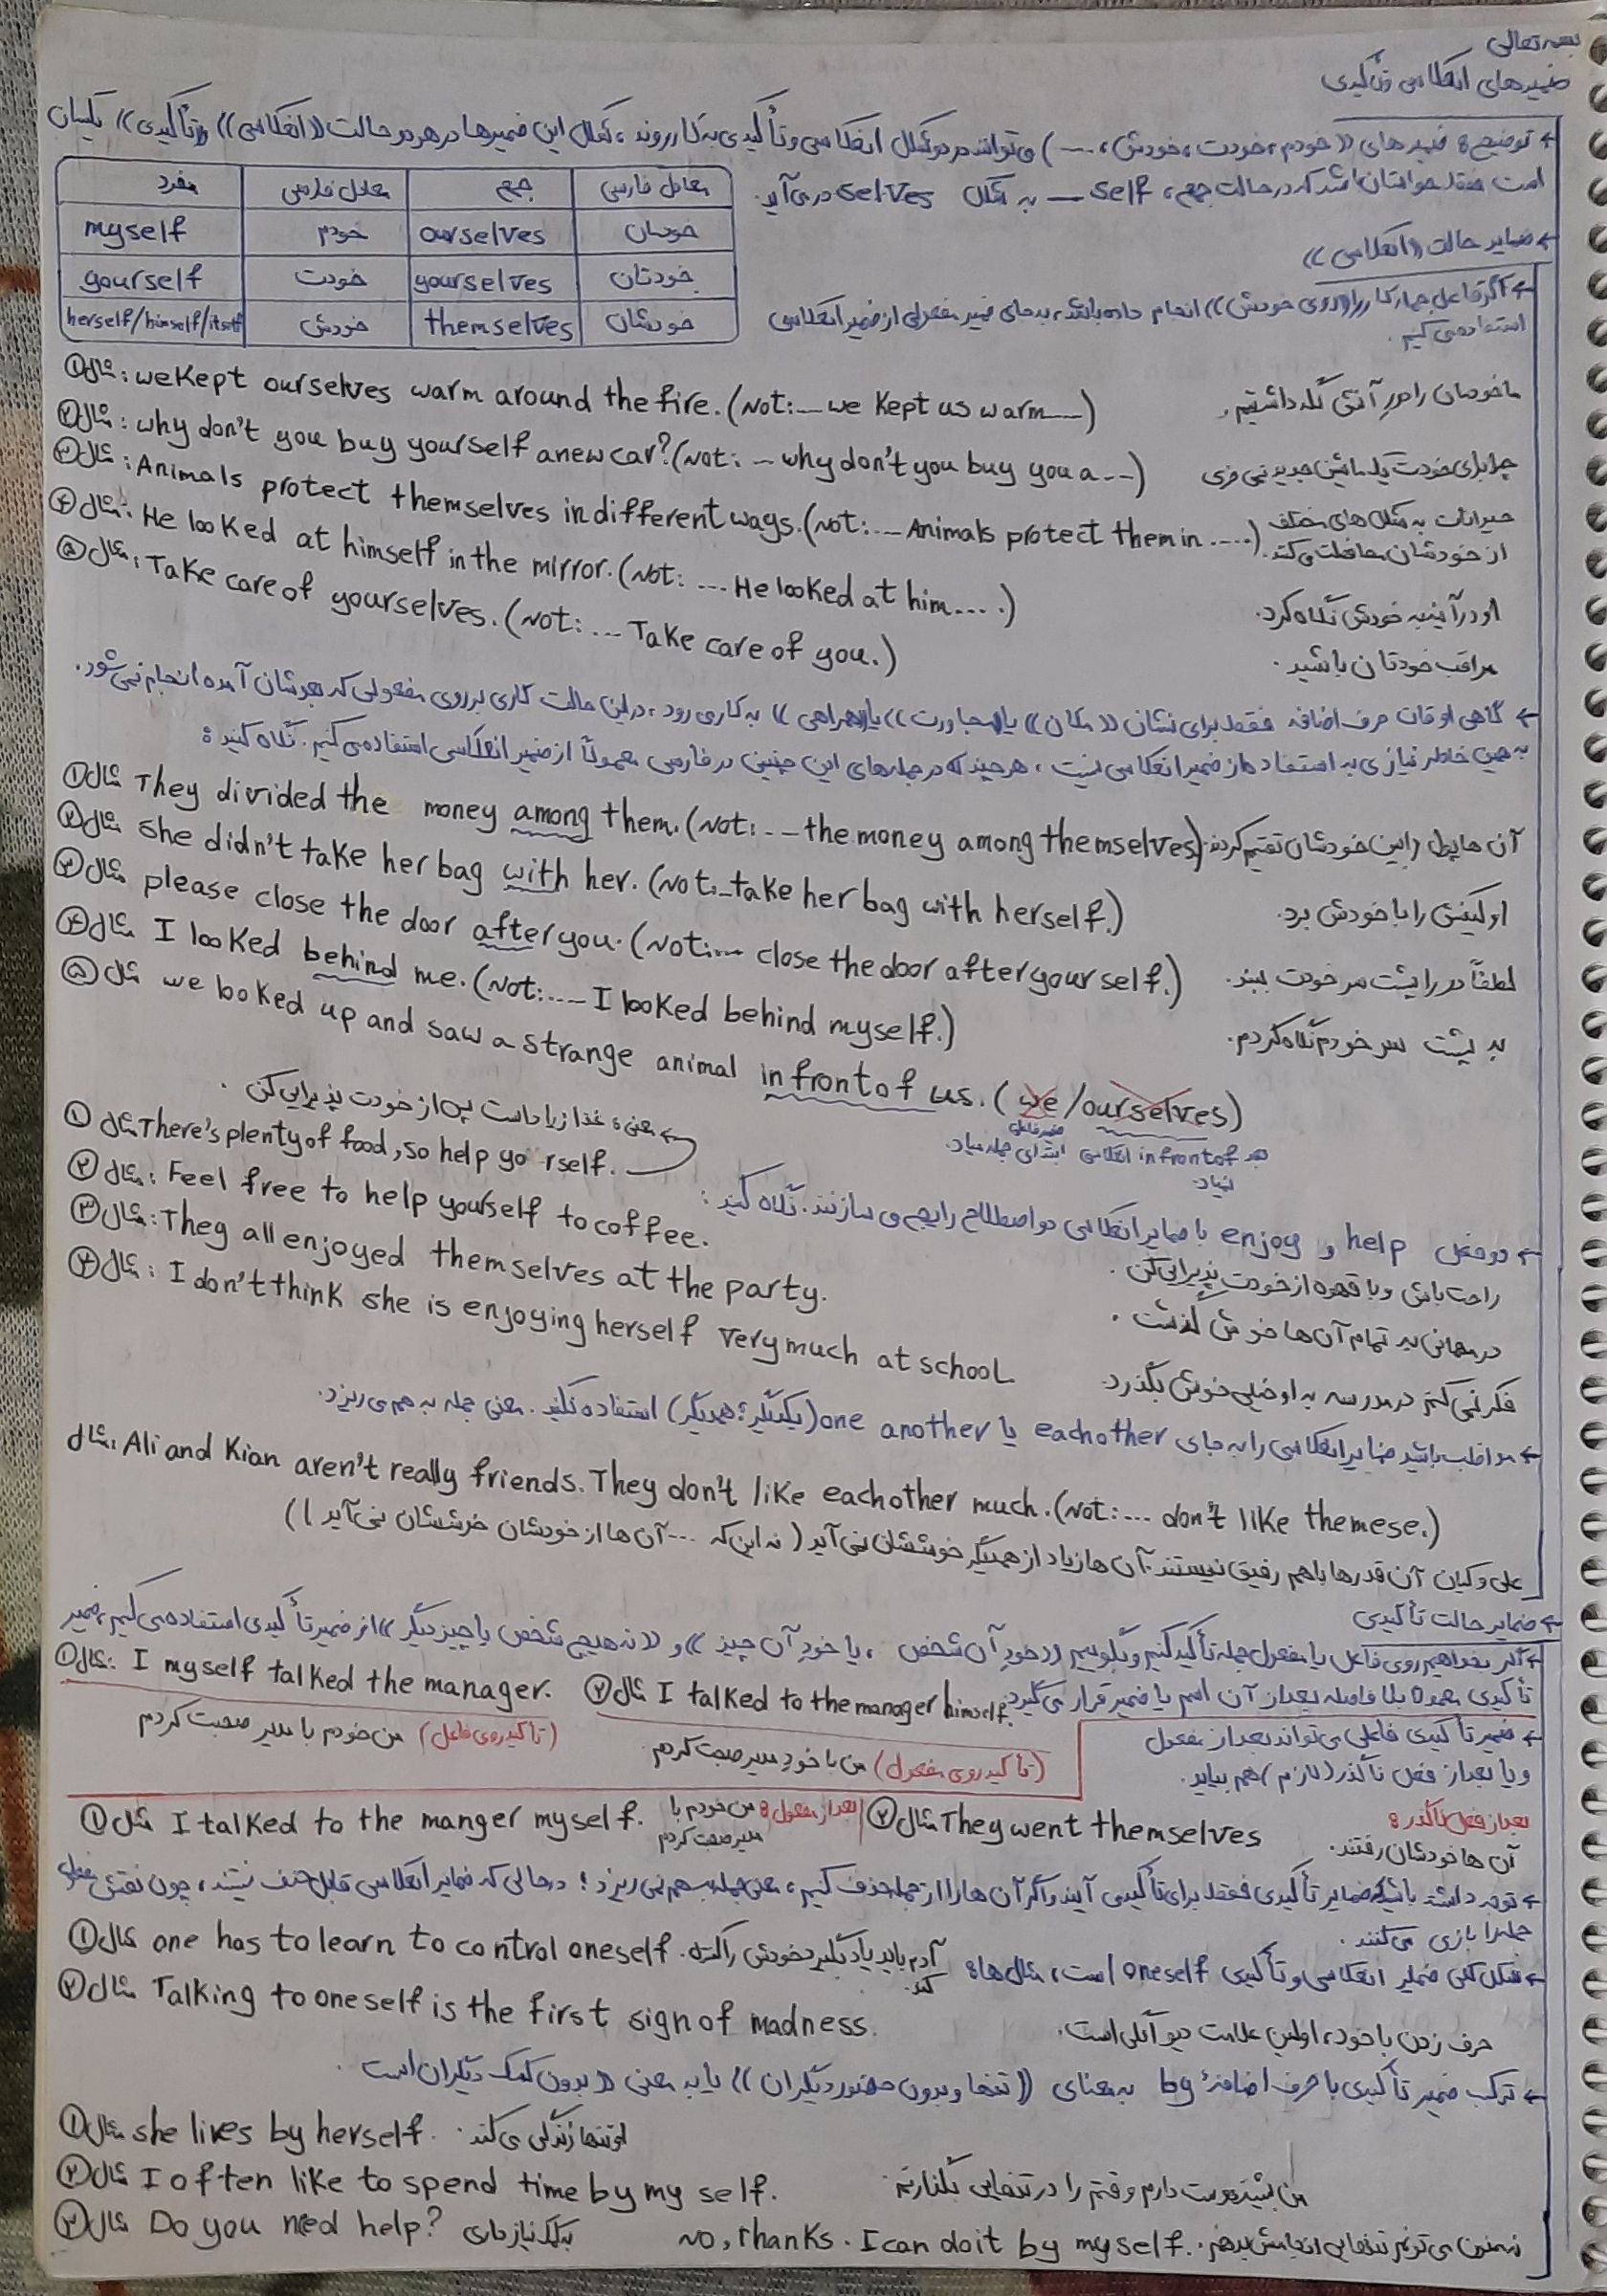 بسمه تعالی
ضمیرهای انعکاسی و تأکیدی
← توضیح: ضمیرهای «خودم، خودت، خودش، ...» می‌توانند در دو شکل انعکاسی و تأکیدی به کار روند، شکل این ضمیرها در هر دو حالت «انعکاسی» و «تأکیدی» یکسان
است فقط حواستان باشد که در حالت جمع، self — به شکل selves در می‌آید.
مفرد | معادل فارسی | جمع | معادل فارسی
myself | خودم | ourselves | خودمان
yourself | خودت | yourselves | خودتان
herself/himself/itself | خودش | themselves | خودشان
← ضمایر حالت «انعکاسی»
← اگر فاعل جمله کار را «روی خودش» انجام داده باشد، به جای ضمیر مفعولی از ضمیر انعکاسی
استفاده می‌کنیم.
مثال①: we kept ourselves warm around the fire. (Not: ... we kept us warm ...) ما خودمان را دور آتش نگه داشتیم.
مثال②: why don't you buy yourself a new car? (Not: ... why don't you buy you a ...) چرا برای خودت یک ماشین جدید نمی خری
مثال③: Animals protect themselves in different ways. (Not: ... Animals protect them in ....) حیوانات به شکل های مختلف
از خودشان محافظت می‌کنند.
مثال④: He looked at himself in the mirror. (Not: ... He looked at him ....) او در آینه به خودش نگاه کرد.
مثال⑤: Take care of yourselves. (Not: ... Take care of you.) مراقب خودتان باشید.
← گاهی اوقات حرف اضافه فقط برای نشان «مکان» یا «مجاورت» یا «همراهی» به کار می رود، در این حالت کاری بر روی مفعولی که بعدشان آمده انجام نمی شود.
به همین خاطر نیازی به استفاده از ضمیر انعکاسی نیست، هر چند که در جمله‌های این چنینی در فارسی معمولاً از ضمیر انعکاسی استفاده می کنیم. نگاه کنید:
مثال① They divided the money among them. (Not: ... the money among themselves) آن ها پول را بین خودشان تقسیم کردند.
مثال② she didn't take her bag with her. (Not: ... take her bag with herself.) او کیفش را با خودش برد.
مثال③ please close the door after you. (Not: ... close the door after yourself.) لطفاً در را پشت سر خودت ببند.
مثال④ I looked behind me. (Not: ... I looked behind myself.) به پشت سر خودم نگاه کردم.
مثال⑤ we looked up and saw a strange animal in front of us. (we / ourselves)
ضمیر فاعلی ابتدای جمله میاد.
بعد in front of انعکاسی
نمیاد.
← دو فعل help و enjoy با ضمایر انعکاسی دو اصطلاح رایج می سازند. نگاه کنید:
معنی: غذا زیاد است پس از خودت پذیرایی کن.
مثال① There's plenty of food, so help yo rself.
مثال②: Feel free to help yourself to coffee. راحت باش و با قهوه از خودت پذیرایی کن.
مثال③: They all enjoyed themselves at the party. در مهمانی به تمام آن ها خوش گذشت.
مثال④: I don't think she is enjoying herself very much at school فکر نمی کنم در مدرسه به او خیلی خوش بگذرد.
← مواظب باشید ضمایر انعکاسی را به جای eachother یا one another (یکدیگر؛ همدیگر) استفاده نکنید. معنی جمله به هم می ریزد.
مثال: Ali and Kian aren't really friends. They don't like eachother much. (Not: ... don't like themese.)
علی و کیان آن قدرها با هم رفیق نیستند. آن ها زیاد از همدیگر خوششان نمی آید (نه این که ... آن ها از خودشان خوششان نمی آید!)
← ضمایر حالت تأکیدی
← اگر بخواهیم روی فاعل یا مفعول جمله تأکید کنیم و بگوییم «خودِ آن شخص، یا خودِ آن چیز» و «نه هیچ شخص یا چیز دیگر» از ضمیر تأکیدی استفاده می کنیم، ضمیر
تأکیدی معمولاً بلافاصله بعد از آن اسم یا ضمیر قرار می گیرد.
مثال①: I myself talked the manager. مثال② I talked to the manager himself.
(تاکید روی فاعل) من خودم با مدیر صحبت کردم
(تأکید روی مفعول) من با خودِ مدیر صحبت کردم.
← ضمیر تأکیدی فاعلی می تواند بعد از مفعول
و یا بعد از فعل ناگذر (لازم) هم بیاید.
مثال① I talked to the manger myself. بعد از مفعول: من خودم با
مدیر صحبت کردم
مثال② They went themselves بعد از فعل ناگذر:
آن ها خودشان رفتند.
← توجه داشته باشید که ضمایر تأکیدی فقط برای تأکید می آیند و اگر آن ها را از جمله حذف کنیم، معنی جمله به هم نمی ریزد؛ در حالی که ضمایر انعکاسی قابل حذف نیستند، چون نقش مفعول
جمله را بازی می کنند.
← شکل کلی ضمایر انعکاسی و تأکیدی oneself است، مثال ها:
مثال① one has to learn to control oneself. آدم باید یاد بگیرد خودش را کنترل
کند.
مثال② Talking to oneself is the first sign of madness. حرف زدن با خود، اولین علامت دیوانگی است.
← ترکیب ضمیر تأکیدی با حرف اضافهٔ by به معنای «تنها و بدون حضور دیگران» یا به معنی «بدون کمک دیگران است.
مثال① she lives by herself. او تنها زندگی می کند.
مثال② I often like to spend time by my self. من بیشتر دوست دارم وقتم را در تنهایی بگذارنم.
مثال③ Do you need help? به کمک نیاز داری No, thanks. I can do it by my self. نه ممنون می توانم تنهایی انجامش بدهم.